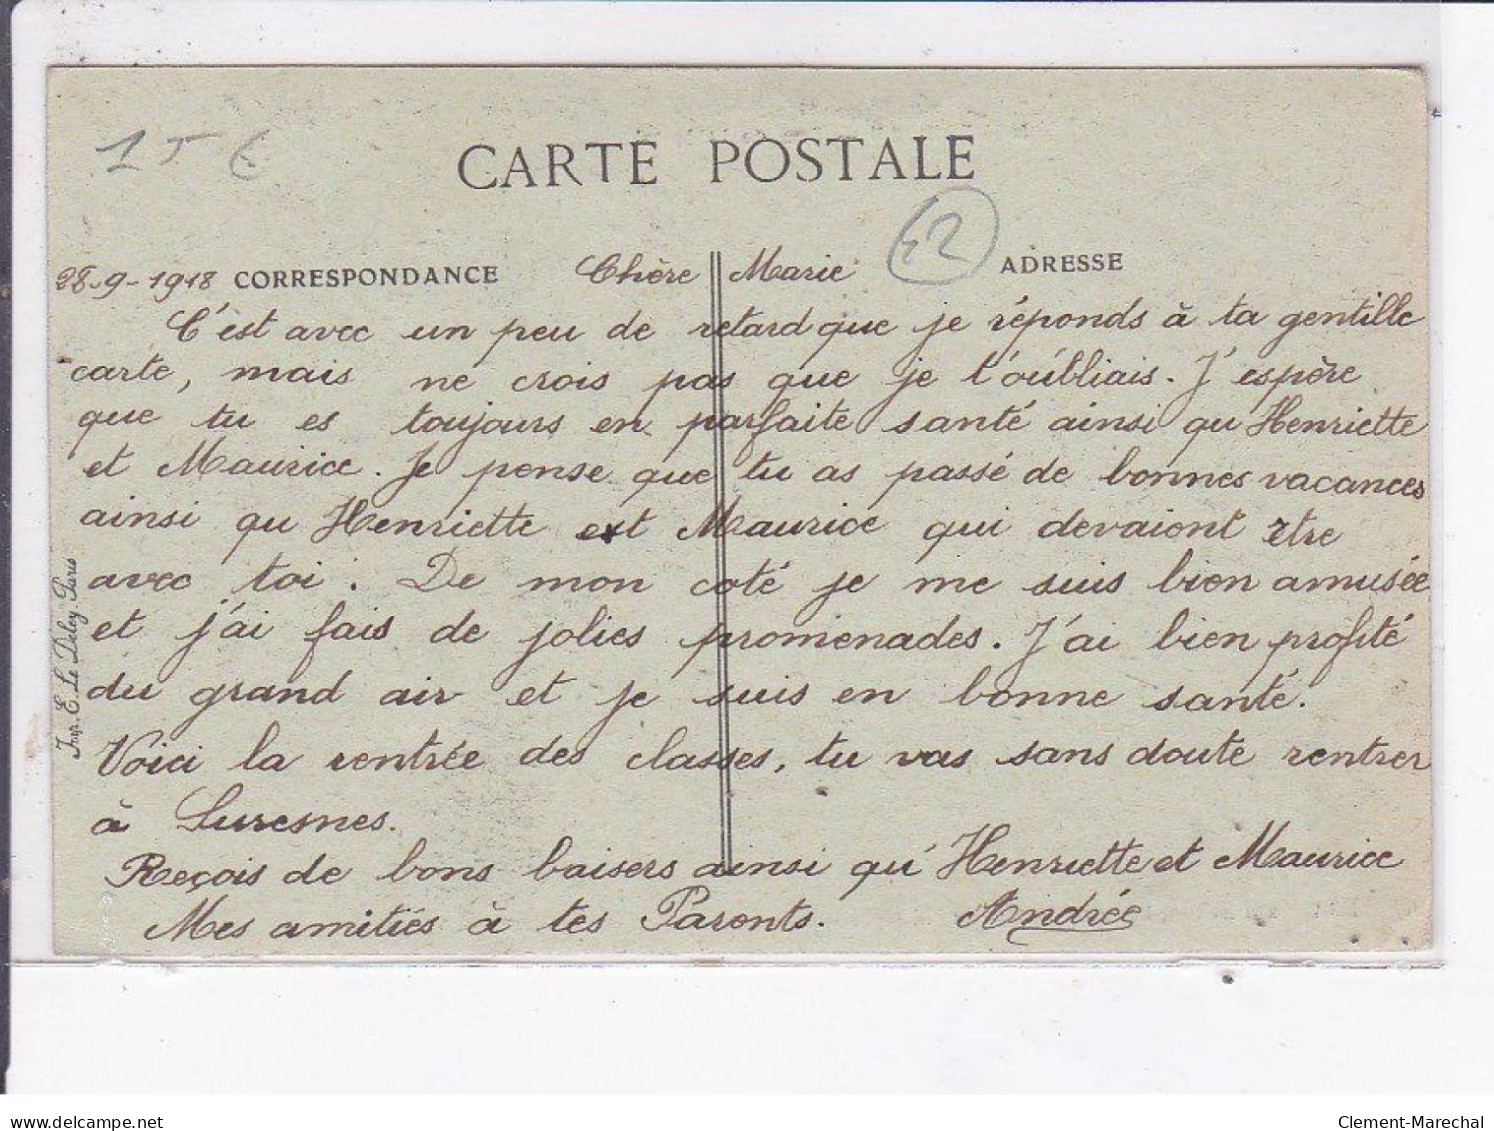 15 €
CARTE POSTALE
42
28-9-1918 CORRESPONDANCE Chère Marie ADRESSE
C'est avec un peu de retard que je réponds à ta gentille
carte, mais ne crois pas que je t'oubliais. J'espère
que tu es toujours en parfaite santé ainsi qu'Henriette
et Maurice. Je pense que tu as passé de bonnes vacances
ainsi qu Henriette et Maurice qui devaient être
avec toi. De mon coté je me suis bien amusée
et j'ai fais de jolies promenades. J'ai bien profité
du grand air et je suis en bonne santé.
Voici la rentrée des classes, tu vas sans doute rentrer
à Suresnes.
Reçois de bons baisers ainsi qu'Henriette et Maurice
Mes amitiés à tes Parents. Andrée
Imp. E. Le Deley, Paris
delcampe.net
Clement-Marechal